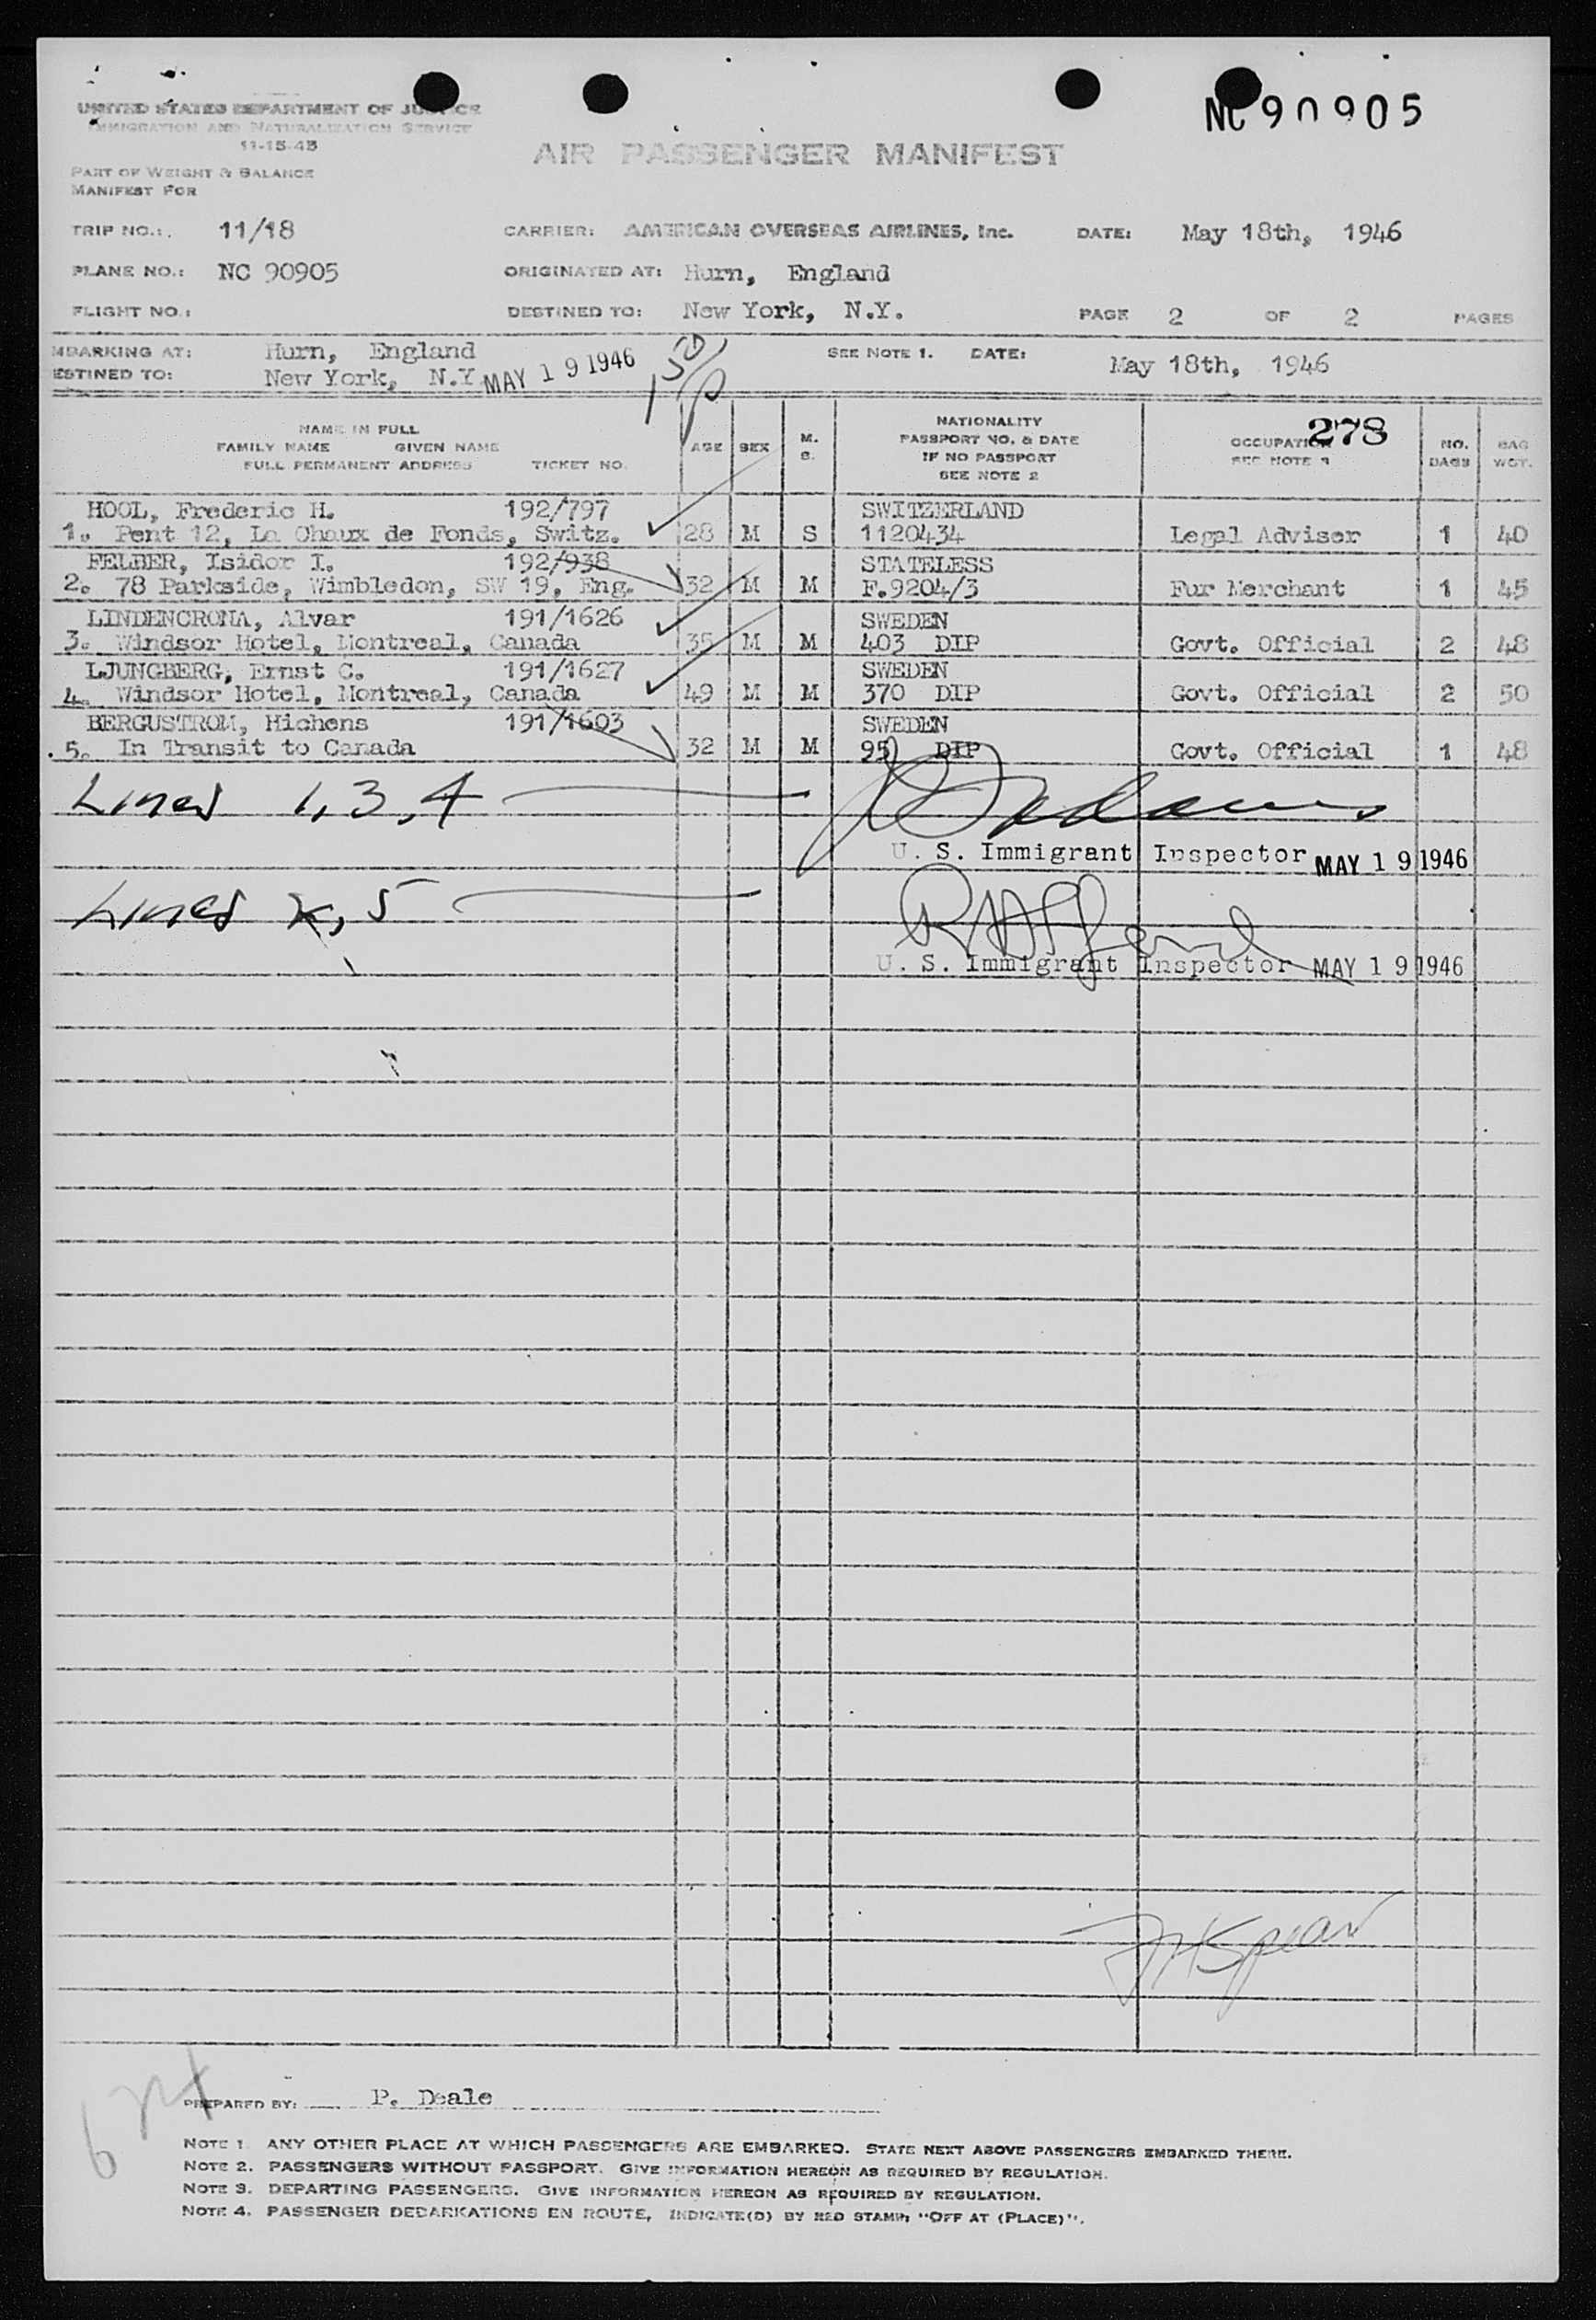 NC90905
UNITED STATES DEPARTMENT OF JUSTICE
IMMIGRATION AND NATURALIZATION SERVICE
11-15-45
AIR PASSENGER MANIFEST
PART OF WEIGHT & BALANCE
MANIFEST FOR
TRIP NO.: 11/18 CARRIER: AMERICAN OVERSEAS AIRLINES, Inc. DATE: May 18th, 1946
PLANE NO.: NC 90905 ORIGINATED AT: Hurn, England
FLIGHT NO.: DESTINED TO: New York, N.Y. PAGE 2 OF 2 PAGES
MBARKING AT: Hurn, England SEE NOTE 1. DATE: May 18th, 1946
ESTINED TO: New York, N.Y. MAY 19 1946
278
NAME IN FULL
FAMILY NAME GIVEN NAME
FULL PERMANENT ADDRESS TICKET NO.
AGE SEX M. S.
NATIONALITY
PASSPORT NO. & DATE
IF NO PASSPORT
SEE NOTE 2
OCCUPATION
SEE NOTE 3
NO. BAGS
BAG WGT.
HOOL, Frederic H. 192/797 SWITZERLAND
1. Pent 12, La Chaux de Fonds, Switz. 28 M S 1120434 Legal Adviser 1 40
FELBER, Isidor I. 192/938 STATELESS
2. 78 Parkside, Wimbledon, SW 19, Eng. 32 M M F.9204/3 Fur Merchant 1 45
LINDENCRONA, Alvar 191/1626 SWEDEN
3. Windsor Hotel, Montreal, Canada 35 M M 403 DIP Govt. Official 2 48
LJUNGBERG, Ernst C. 191/1627 SWEDEN
4. Windsor Hotel, Montreal, Canada 49 M M 370 DIP Govt. Official 2 50
BERGUSTROM, Hichens 191/1603 SWEDEN
5. In Transit to Canada 32 M M 95 DIP Govt. Official 1 48
Lines 1, 3, 4
U. S. Immigrant Inspector MAY 19 1946
Lines 2, 5
U. S. Immigrant Inspector MAY 19 1946
PREPARED BY: P. Deale
NOTE 1. ANY OTHER PLACE AT WHICH PASSENGERS ARE EMBARKED. STATE NEXT ABOVE PASSENGERS EMBARKED THERE.
NOTE 2. PASSENGERS WITHOUT PASSPORT. GIVE INFORMATION HEREON AS REQUIRED BY REGULATION.
NOTE 3. DEPARTING PASSENGERS. GIVE INFORMATION HEREON AS REQUIRED BY REGULATION.
NOTE 4. PASSENGER DEBARKATIONS EN ROUTE, INDICATE(D) BY RED STAMP: "OFF AT (PLACE)".